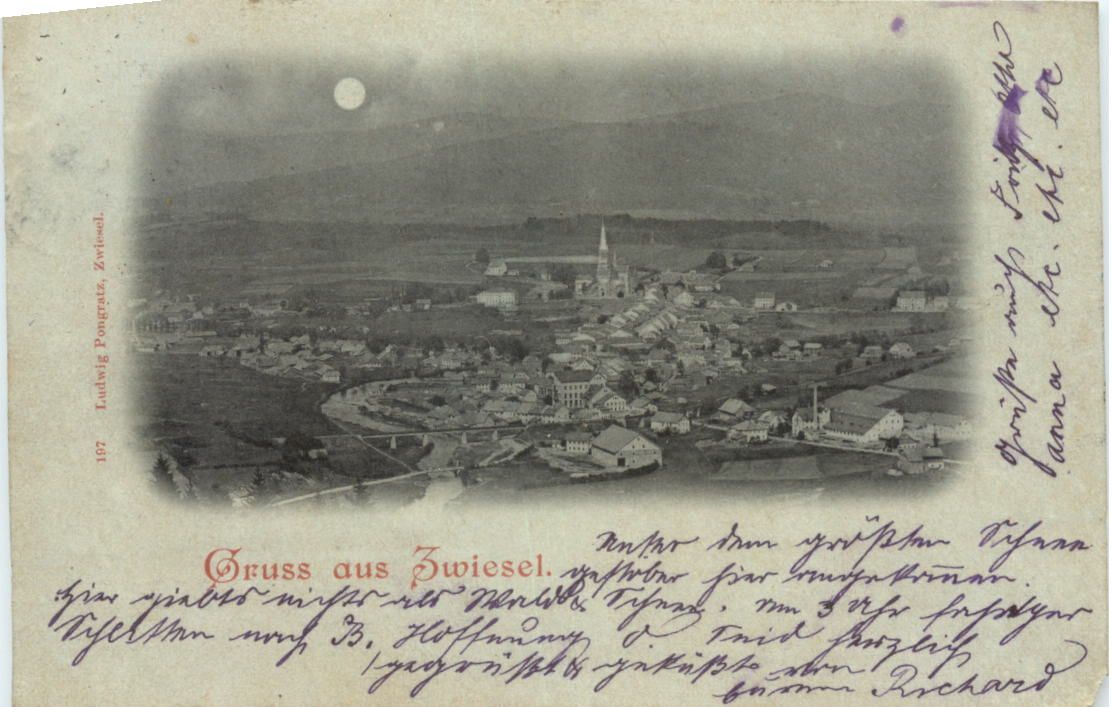 197 Ludwig Pongratz, Zwiesel.
Gruss aus Zwiesel.
Unter dem größten Schnee
gestöber hier angekommen.
Hier giebts nichts als Wald & Schnee. Um 3 Uhr
Schlitten nach B. Hoffnung herzlich
gegrüßt & geküßt von
Richard
Grüße auch
Anna etc. etc. etc